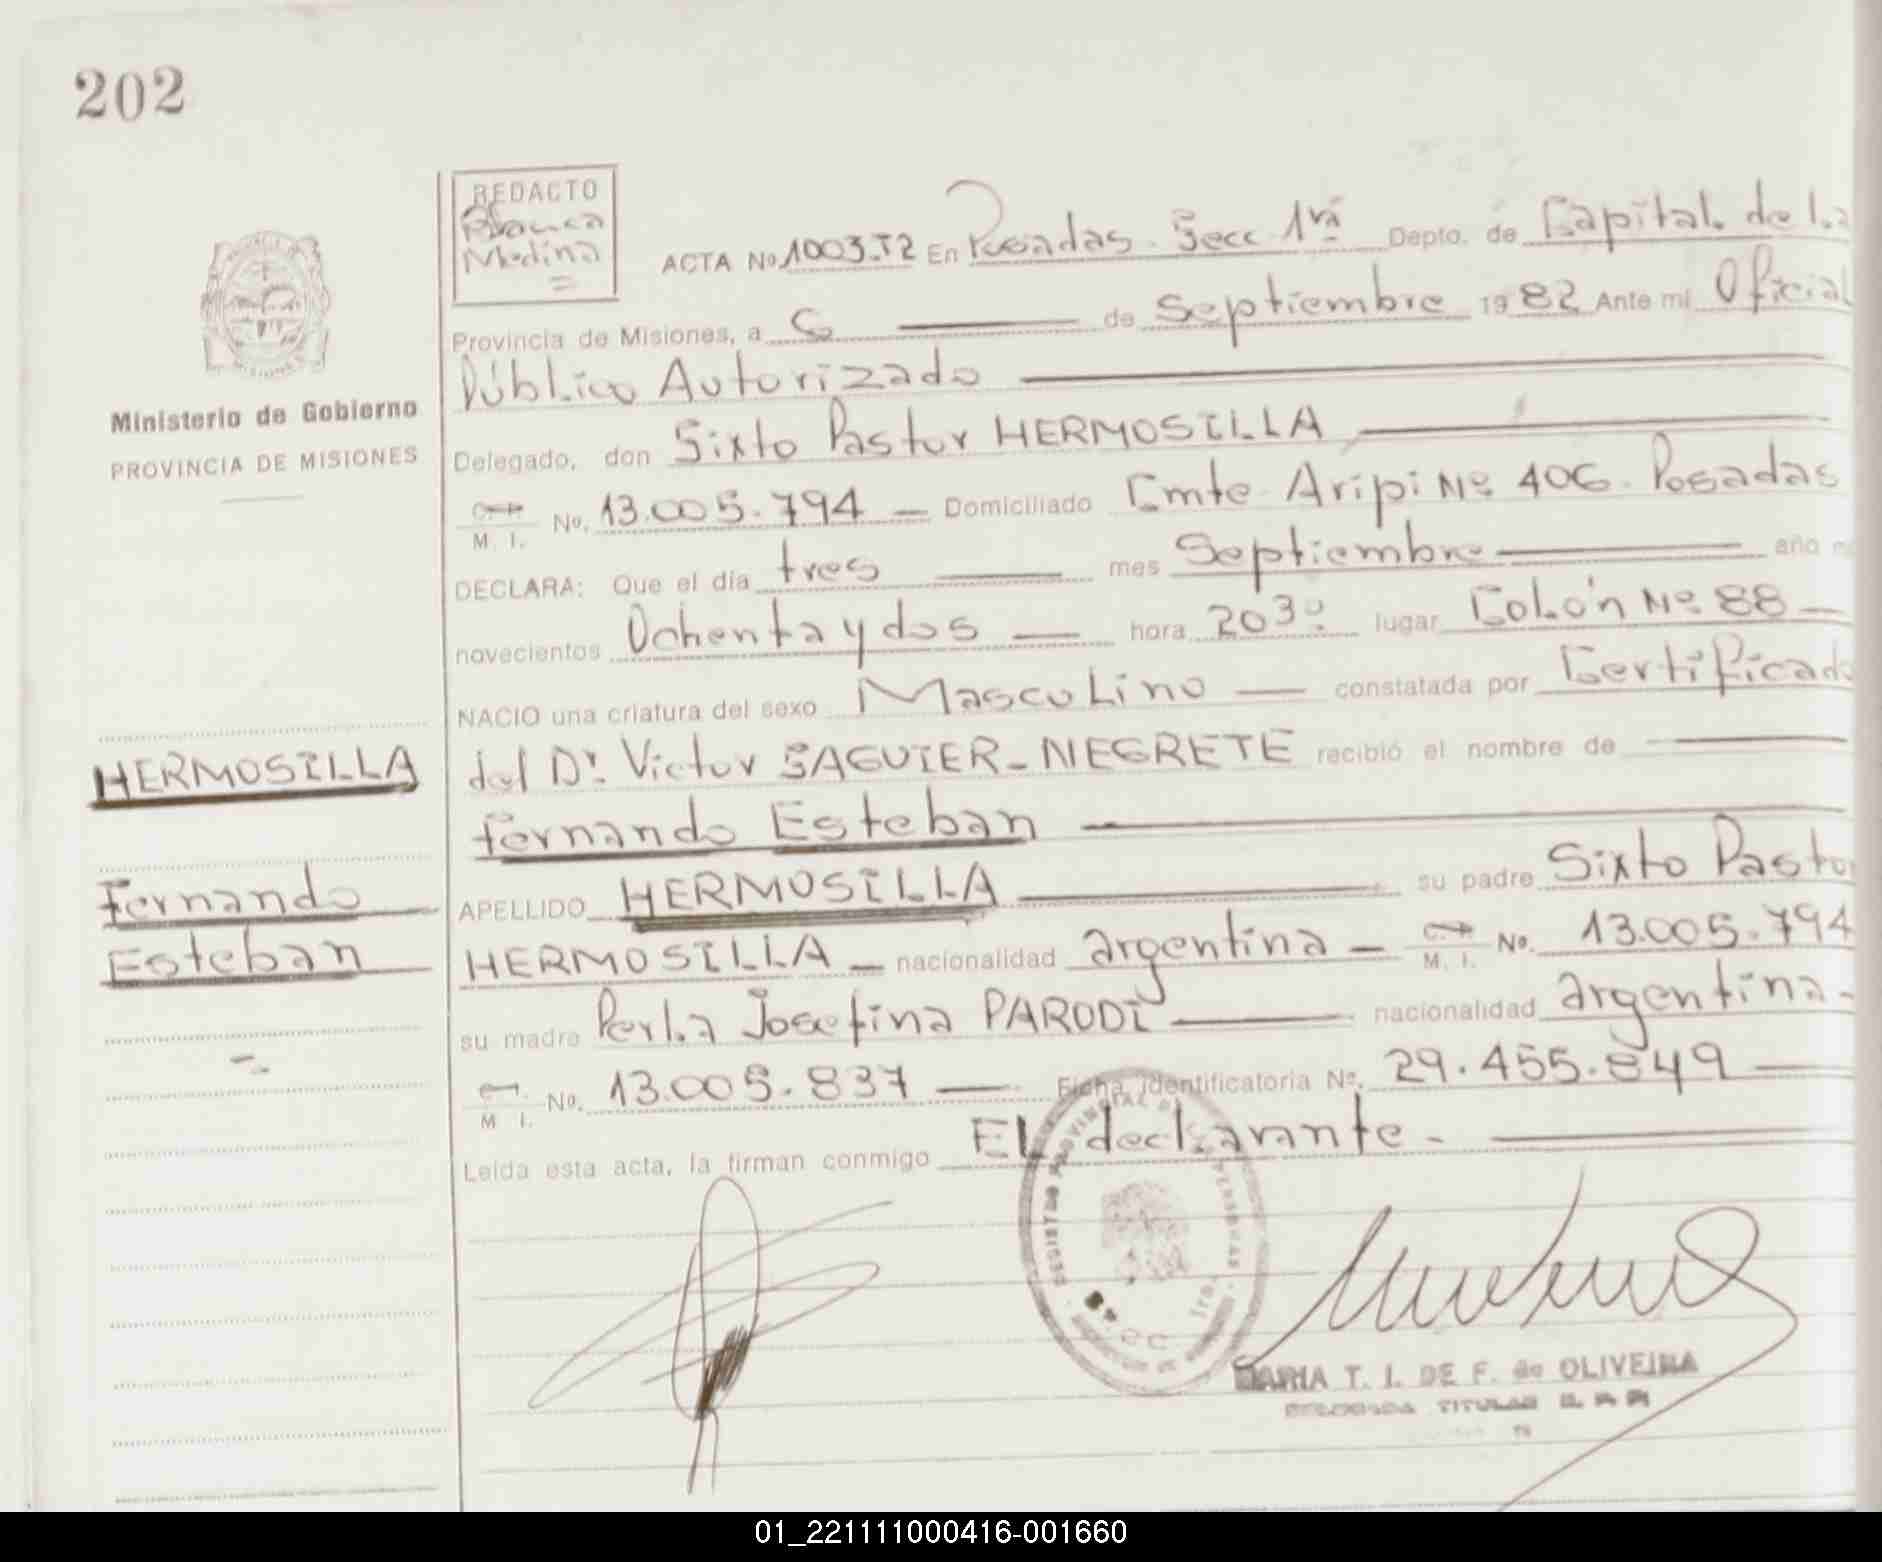 202
REDACTO
Blanca
Medina
ACTA No 1003.T2 En Posadas. Secc 1ra Depto. de Capital. de La
Provincia de Misiones, a 6 de Septiembre 1982 Ante mi Oficial
Público Autorizado
Ministerio de Gobierno
PROVINCIA DE MISIONES
Delegado, don Sixto Pastor HERMOSILLA
C. I.
M. I. No. 13.005.794 Domiciliado Cmte Aripi Nº 406. Posadas
DECLARA: Que el día tres mes Septiembre año
novecientos Ochenta y dos hora 2030 lugar Colón Nº 88
NACIO una criatura del sexo Masculino constatada por Certificado
HERMOSILLA
del Dr. Victor SAGUIER-NEGRETE recibió el nombre de
Fernando Esteban
Fernando
Esteban
APELLIDO HERMOSILLA su padre Sixto Pasto
HERMOSILLA nacionalidad argentina M. I. No. 13.005.794
su madre Perla Josefina PARODI nacionalidad argentina-
M I. No. 13.005.837 Ficha identificatoria No. 29.455.849
Leída esta acta, la firman conmigo El declarante.
MARIA T. I. DE F. de OLIVEIRA
TITULAR
01_221111000416-001660